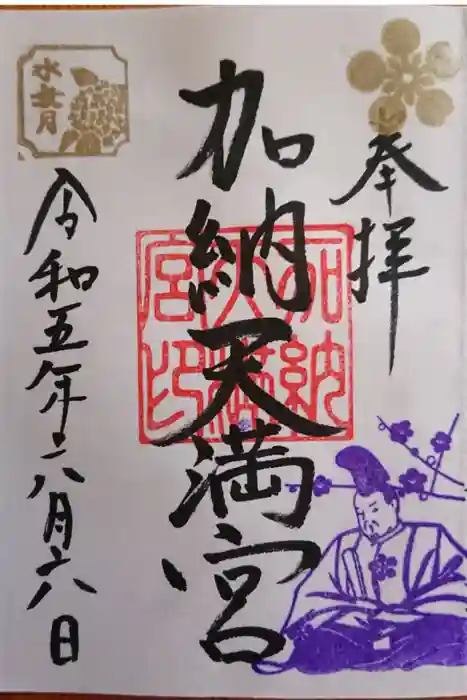 奉拝
加納天満宮
加納
天満
宮印
水無月
令和五年六月六日